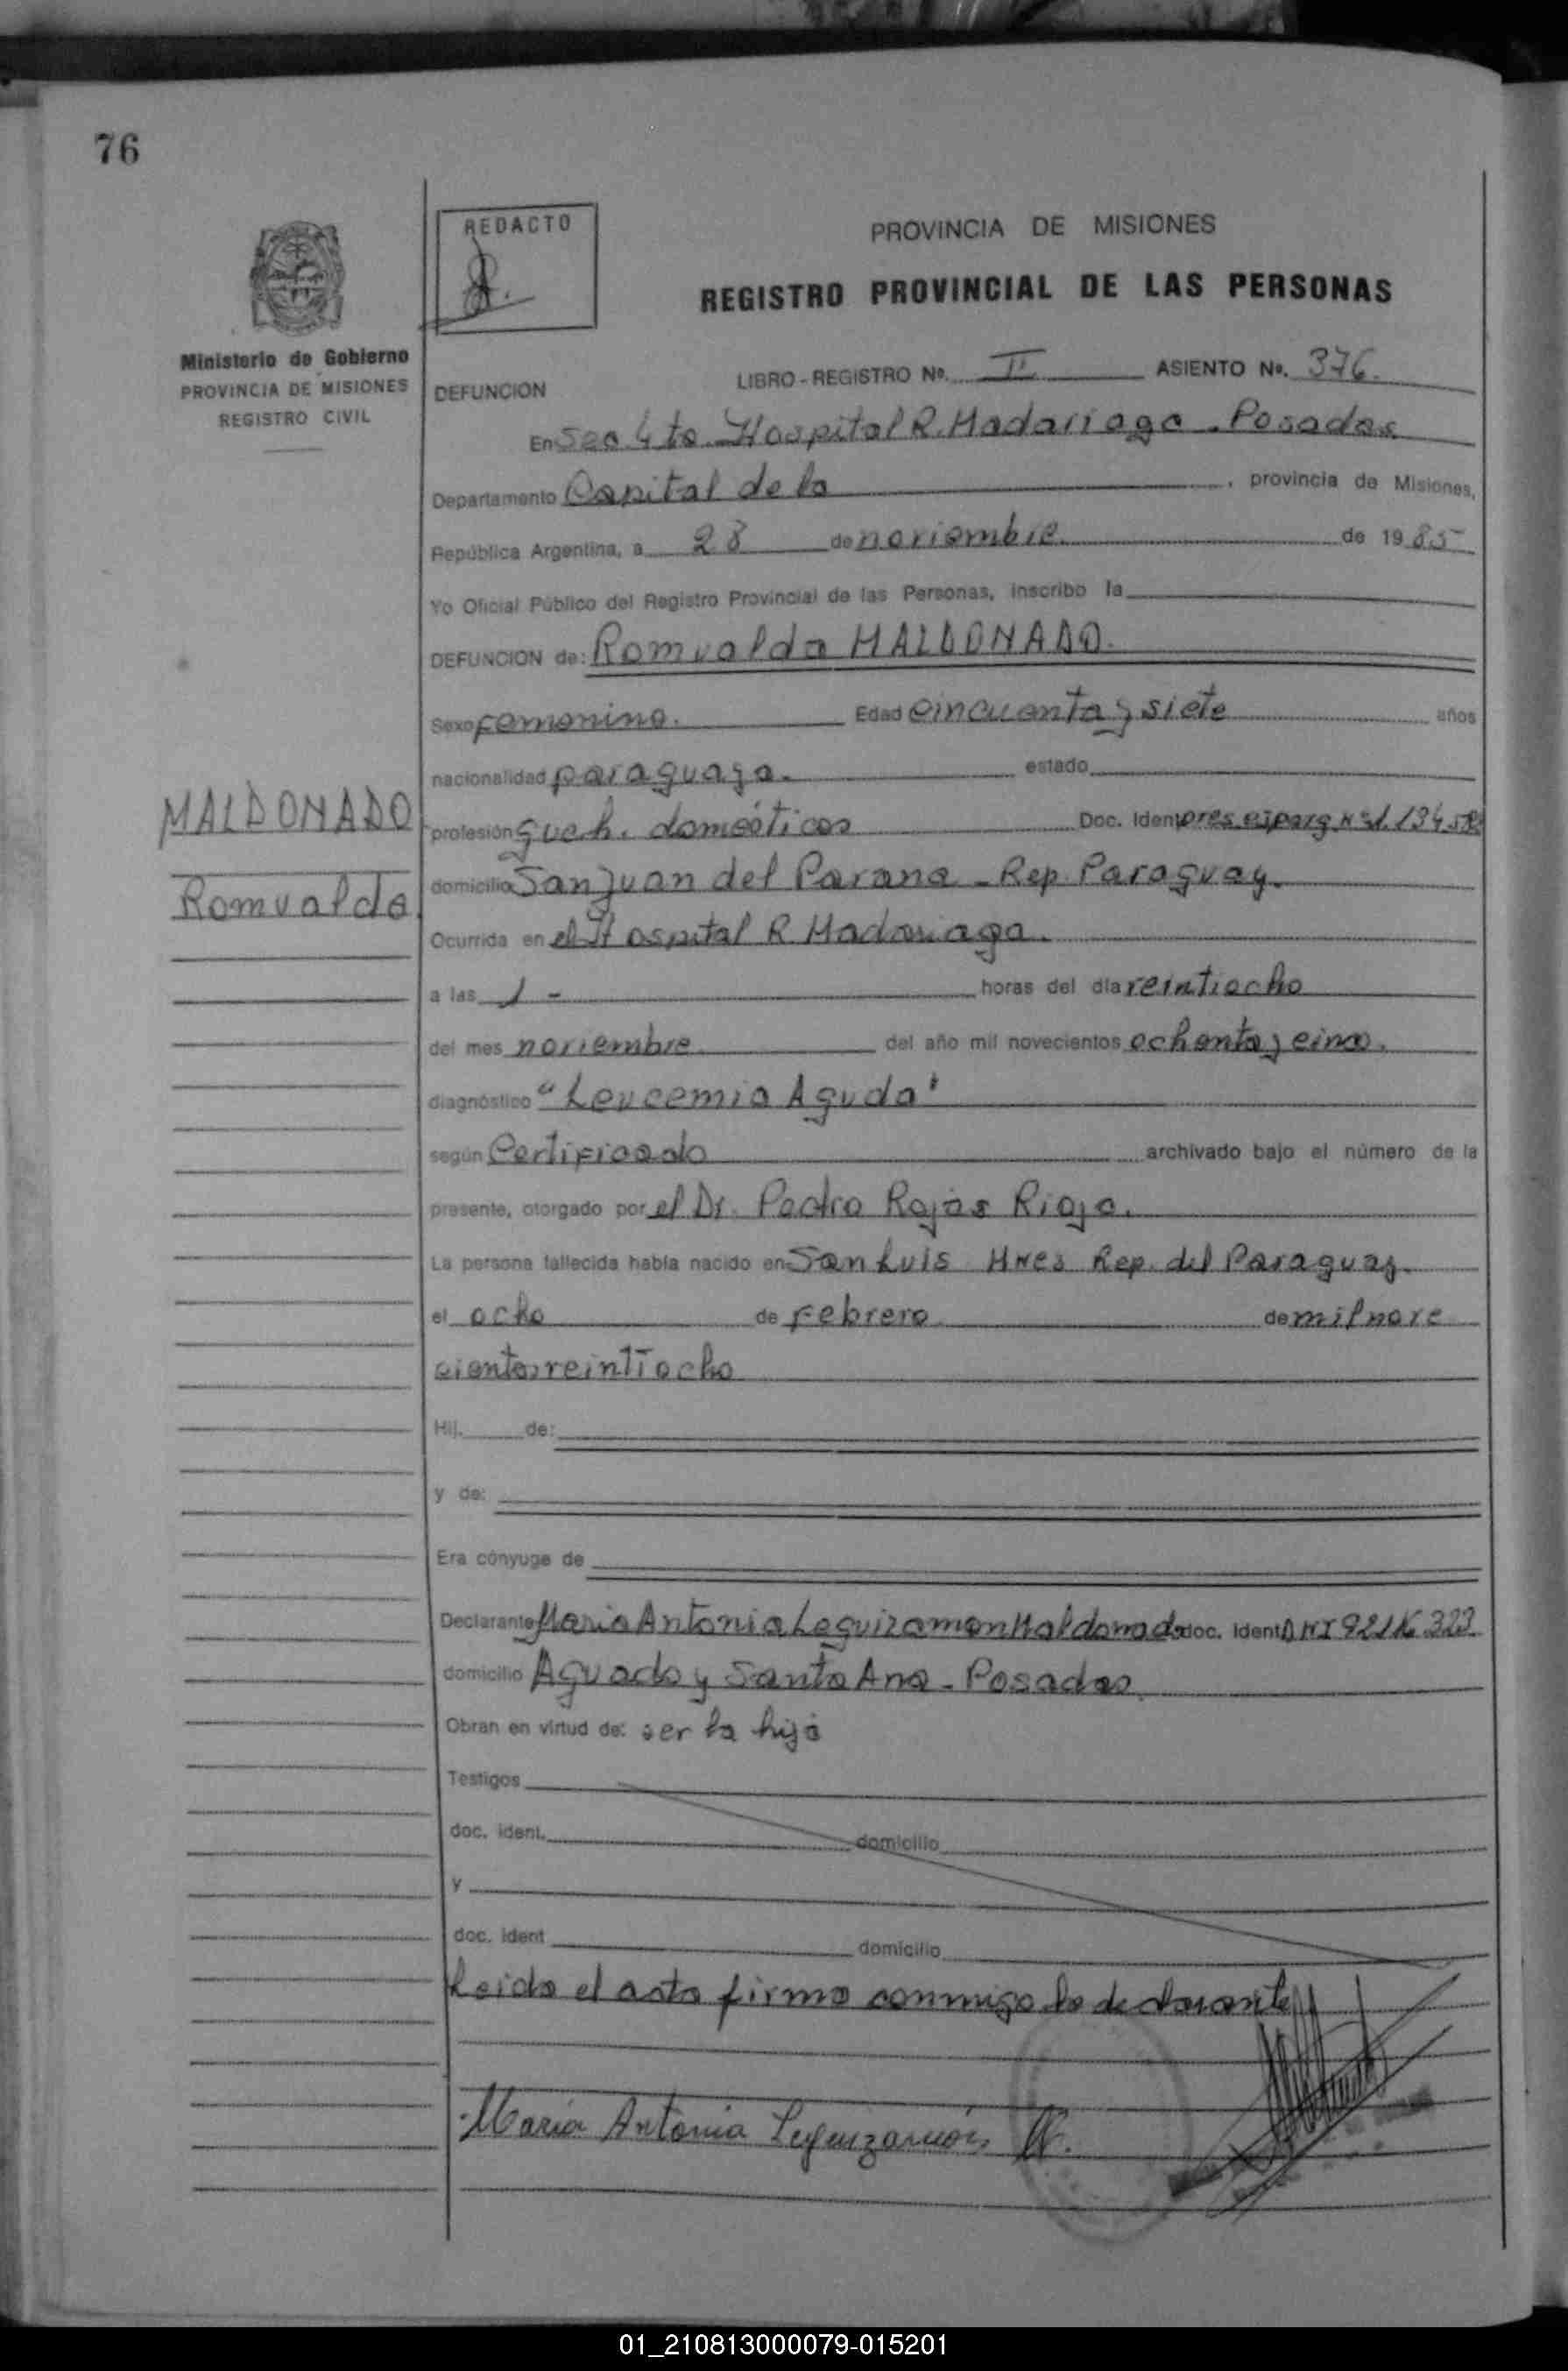 76
REDACTO
PROVINCIA DE MISIONES
REGISTRO PROVINCIAL DE LAS PERSONAS
Ministerio de Gobierno
PROVINCIA DE MISIONES
REGISTRO CIVIL
LIBRO-REGISTRO Nº. II ASIENTO Nº. 376.
DEFUNCION
En Sec 4ta Hospital R. Madariaga. Posadas
Departamento Capital de la, provincia de Misiones,
República Argentina, a 28 de noviembre de 1985
Yo Oficial Público del Registro Provincial de las Personas, inscribo la
DEFUNCION de: Romualda MALDONADO.
Sexo femenino. Edad cincuenta y siete años
nacionalidad paraguaya. estado
MALDONADO
Romualda
profesión queh. domésticos Doc. Iden
domicilio San Juan del Parana - Rep. Paraguay.
Ocurrida en el Hospital R Madariaga.
a las 1 - horas del día veintiocho
del mes noviembre del año mil novecientos ochenta y cinco.
diagnóstico "Leucemia Aguda"
según Certificado archivado bajo el número de la
presente, otorgado por el Dr. Pedro Rojas Rioja.
La persona fallecida había nacido en San Luis Rep. del Paraguay.
el ocho de Febrero de mil nove
cientos veintiocho
Hij. de:
y de:
Era cónyuge de
Declarante Maria Antonia Leguizamon Maldonado doc. Ident DNI
domicilio Aguado y Santa Ana - Posadas.
Obran en virtud de: ser la hija
Testigos
doc. ident. domicilio
y
doc. ident domicilio
Leida el acta firma conmigo la declarante
Maria Antonia Leguizamón M.
01_210813000079-015201